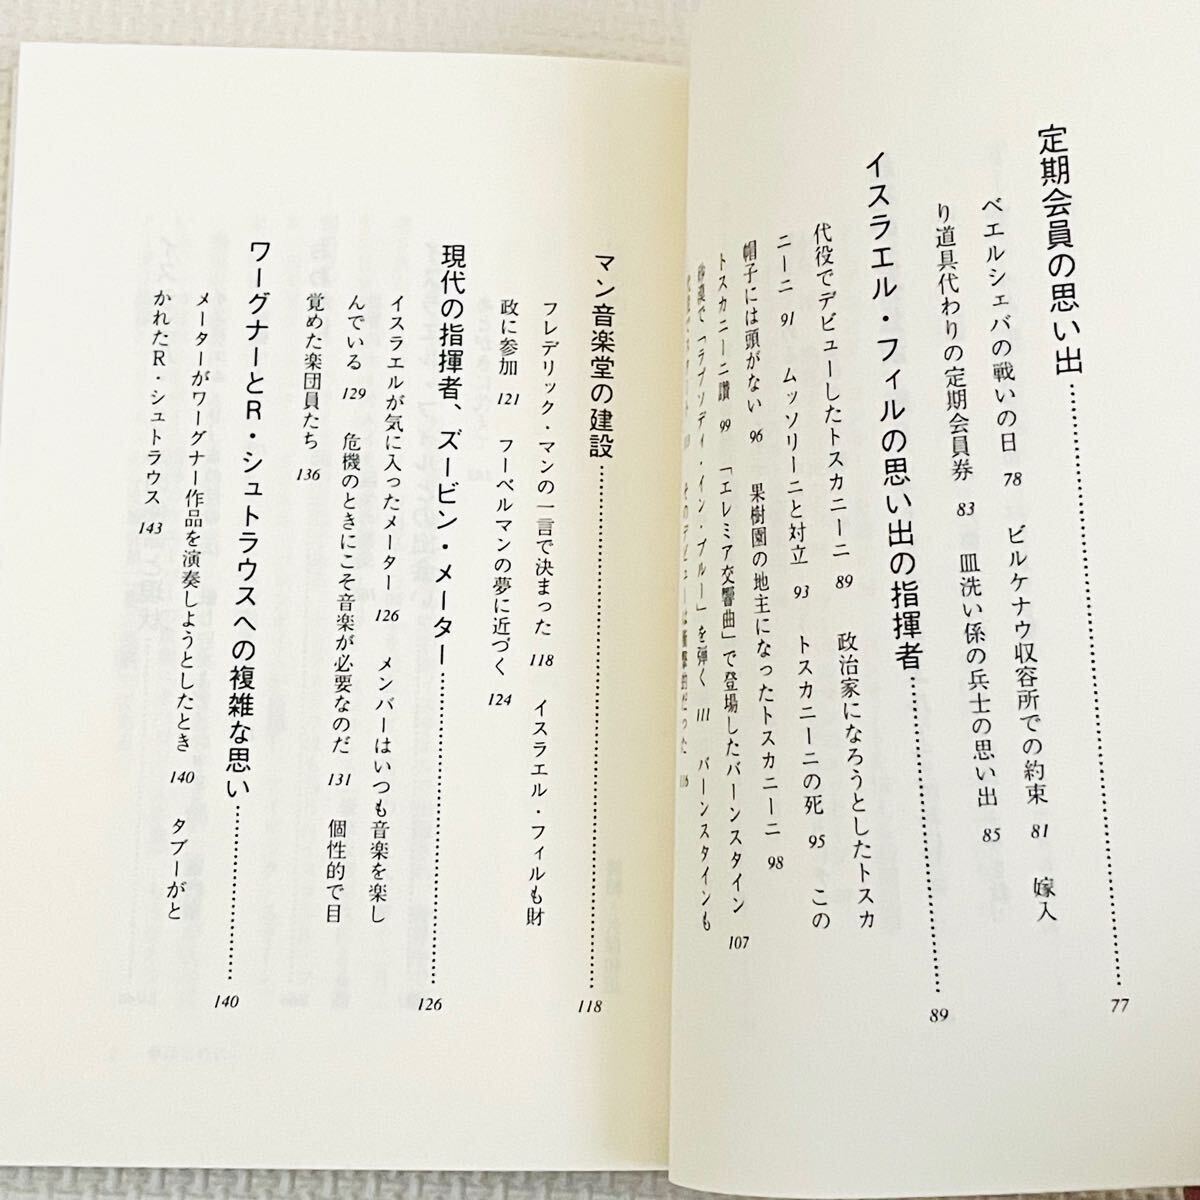 定期会員の思い出 77
ベエルシェバの戦いの日 78 ビルケナウ収容所での約束 81 嫁入
り道具代わりの定期会員券 83 皿洗い係の兵士の思い出 85
イスラエル・フィルの思い出の指揮者 89
代役でデビューしたトスカニーニ 89 政治家になろうとしたトスカ
ニーニ 91 ムッソリーニと対立 93 トスカニーニの死 95 この
帽子には頭がない 96 果樹園の地主になったトスカニーニ 98
トスカニーニ讃 99 「エレミア交響曲」で登場したバーンスタイン 107
砂漠で「ラプソディ・イン・ブルー」を弾く 111 バーンスタインも
そのデビューは衝撃的だった 116
マン音楽堂の建設 118
フレデリック・マンの一言で決まった 118 イスラエル・フィルも財
政に参加 121 フーベルマンの夢に近づく 124
現代の指揮者、ズービン・メーター 126
イスラエルが気に入ったメーター 126 メンバーはいつも音楽を楽し
んでいる 129 危機のときにこそ音楽が必要なのだ 131 個性的で目
覚めた楽団員たち 136
ワーグナーとR・シュトラウスへの複雑な思い 140
メーターがワーグナー作品を演奏しようとしたとき 140 タブーがと
かれたR・シュトラウス 143